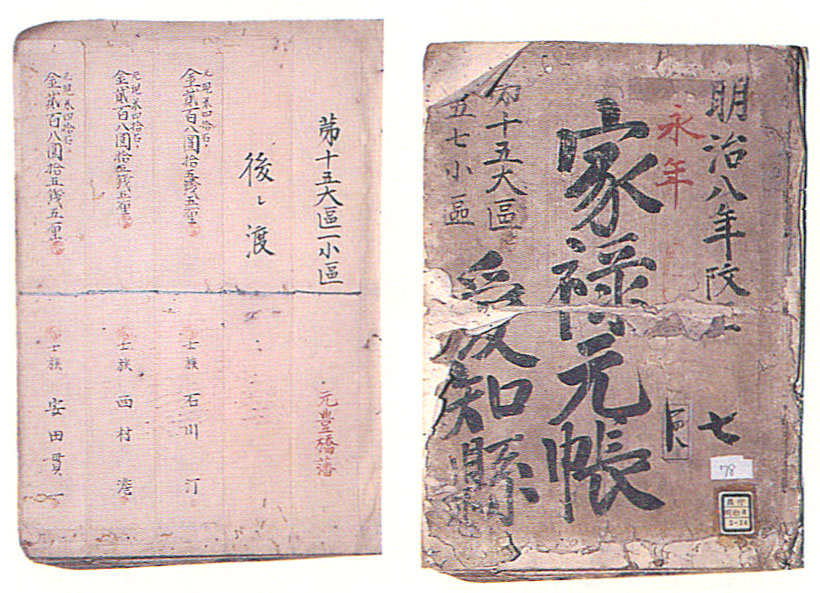 明治八年
七
78
永年
家禄元帳
第十五大區
五七小區
愛知縣
苐十五大區一小區
元豊橋藩
後ゝ渡
元現米四拾石
金貳百八圓拾五錢五厘
士族 石川 汀
元現米四拾石
金貳百八圓拾五錢五厘
士族 西村 港
元現米四拾石
金貳百八圓拾五錢五厘
士族 安田貫一